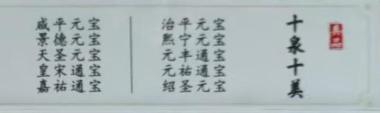 十泉十美
咸平元宝
景德元宝
天圣元宝
皇宋通宝
嘉祐通宝
治平元宝
熙宁元宝
元丰通宝
元祐通宝
绍圣元宝